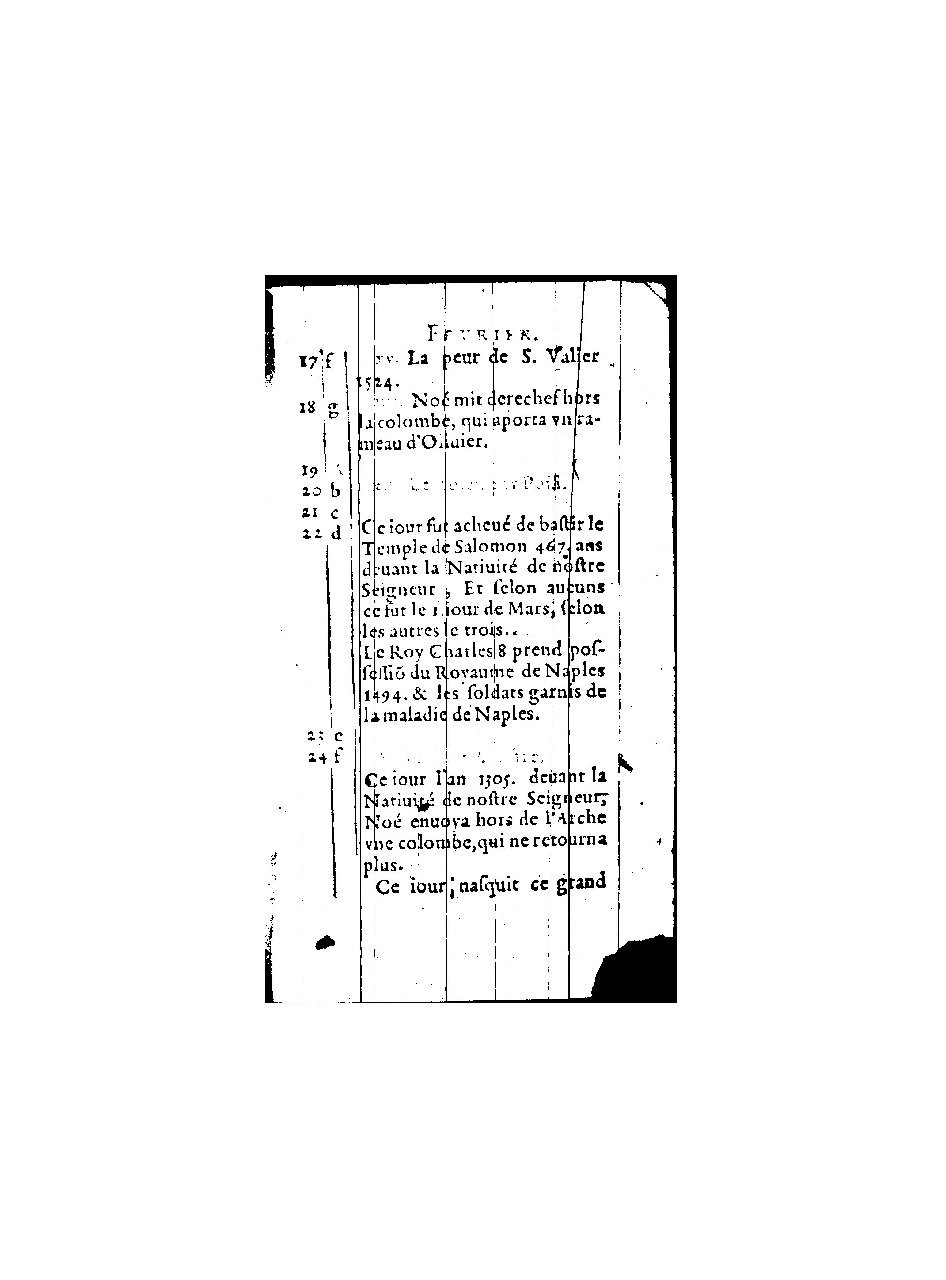 FEVRIER.
17 f xv. La peur de S. Valier
1524.
18 g Noé mit derechef hors
la colombe, qui aporta vn ra-
meau d'Oliuier.
19
20 b
21 c
22 d Ce iour fut acheué de bastir le
Temple de Salomon 467. ans
deuant la Natiuité de nostre
Seigneur, Et selon aucuns
ce fut le 1. iour de Mars, selon
les autres le trois..
Le Roy Charles 8 prend pos-
sessiõ du Royaume de Naples
1494. & les soldats garnis de
la maladie de Naples.
23 e
24 f
Ce iour l'an 1305. deuant la
Natiuité de nostre Seigneur,
Noé enuoya hors de l'Arche
vne colombe, qui ne retourna
plus.
Ce iour nasquit ce grand